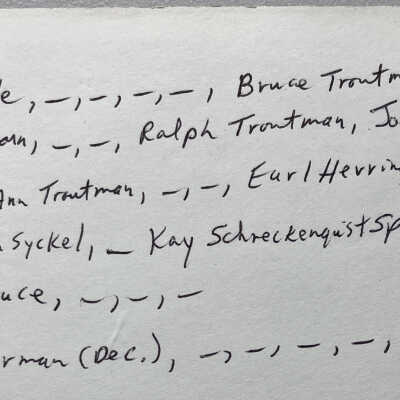 e, –, –, –, –, Bruce Troutm
ann, –, –, Ralph Troutman, Jo
Ann Troutman, –, –, Earl Herrin
Syckel, – Kay Schreckenquist Sp
uce, –, –, –
rman (Dec.), –, –, –, –,